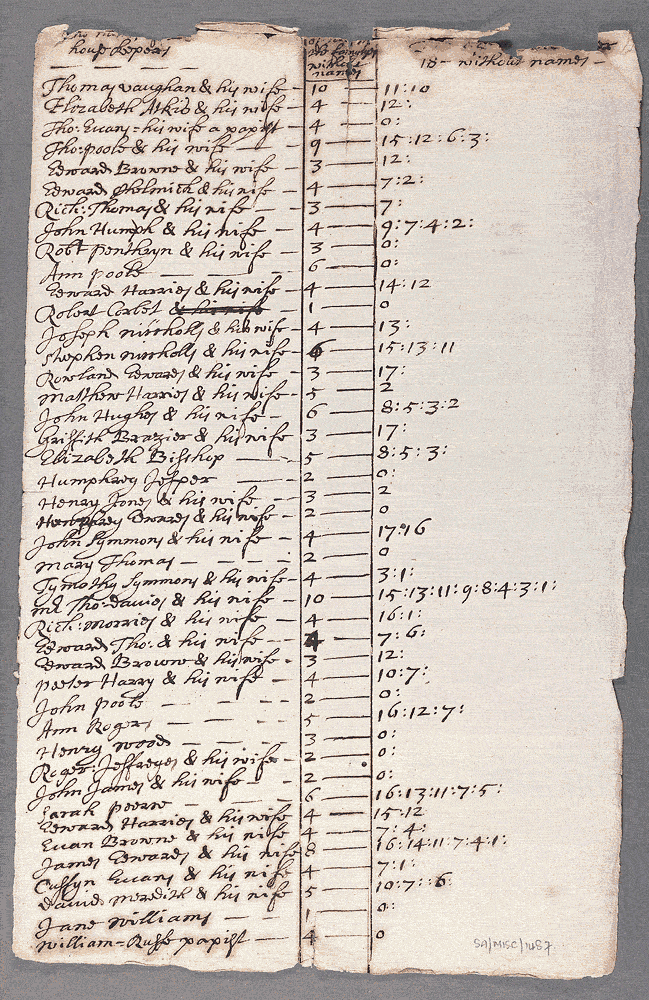 houskepers
the familys without names
18 - without names -
Thomas vaughan & his wife - 10 11:10
Elizabeth Atkis & his wife - 4 12:
Tho: Evans = his wife a papist 4 0:
Tho: poole & his wife 9 15:12:6:3:
Edward Browne & his wife 3 12:
Edward & his wife 4 7:2:
Rich: Thomas & his wife 3 7:
John Humph & his wife 4 9:7:4:2:
Robt penthryn & his wife 3 0:
Ann poole 6 0:
Edward Harries & his wife 4 14:12
Robert Corbet & his wife 1 0
Joseph niccholls & his wife 4 13:
Stephen niccholls & his wife 6 15:13:11
Rowland Edwards & his wife 3 17:
Matthew Harries & his wife 5 2
John Hughes & his wife - 6 8:5:3:2
Griffith Brazier & his wife 3 17:
Elizabeth Bisshop 5 8:5:3:
Humphrey Jesper 2 0:
Henry Jones & his wife 3 2
Humphrey Edwards & his wife - 2 0
John Symmons & his wife 4 17:16
mary Thomas 2 0
Tymothy Symmons & his wife - 4 3:1:
Tho: davies & his wife - 10 15:13:11:9:8:4:3:1:
Rich: Morries & his wife 4 16:1:
Edward Tho: & his wife 4 7:6:
Edward Browne & his wife - 3 12:
peeter Harry & his wife 4 10:7:
John poole 2 0:
Ann Rogers 5 16:12:7:
Henry wood 3 0:
Roger: Jeffreyes & his wife 2 0:
John James & his wife 2 0:
Sarah peerce 6 16:13:11:7:5:
Edward Harries & his wife 4 15:12
Evan Browne & his wife 4 7:4:
James Edwards & his wife 8 16:14:11:7:4:1:
Evans & his wife 4 7:1:
david meredith & his wife 5 10:7:6:
Jane Williams 1 0:
William = Russe papist 4 0
SA/MISC/1457